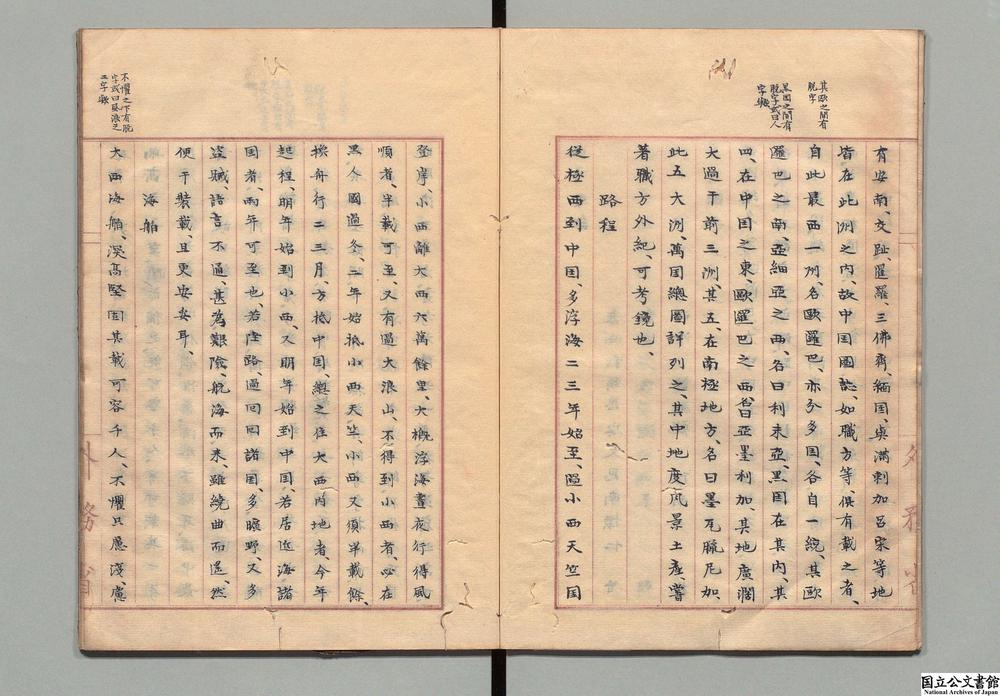 其歐之間有
脱字
黒国之間有
脱字或曰人
字歟
有安南、交趾、暹羅、三佛齊、緬国、與滿剌加呂宋等地
皆在此洲之内、故中国圖誌、如職方等、俱有載之者、
自此最西一州、名歐羅巴、亦分多国、各自一統、其歐
羅巴之南、亞細亞之西、名曰利未亞、黒国在其内、其
四、在中国之東、歐羅巴之西、名曰亞墨利加、其地廣濶
大過于前三洲、其五、在南極地方、名曰墨瓦臘尼加、
此五大洲、萬国總圖詳列之、其中地度風景土産、嘗
著職方外紀、可考鏡也、
路程
從極西到中国、多浮海二三年始至、隔小西天竺国
不懼之下有脱
字或曰風浪之
二字歟
登岸小西離大西六萬餘里、大槪浮海晝夜行得風
順者、半載可至、又有過大浪山、不得到小西者、必在
黒人國過冬、二年始抵小西天竺、小西又須半載餘、
換舟行二三月、方抵中国、總之住大西内地者、今年
起程、明年始到小西、又明年始到中国、若居近海諸
国者、兩年可至也、若陸路、過回回諸国、多曠野、又多
盗賊、語言不通、甚為艱險、航海而来、雖繞曲而遥、然
便于装載、且更安妥耳、
海舶
大西海舶、深髙堅固其載可容千人、不懼只應淺、慮
外務省
外務省
国立公文書館
National Archives of Japan